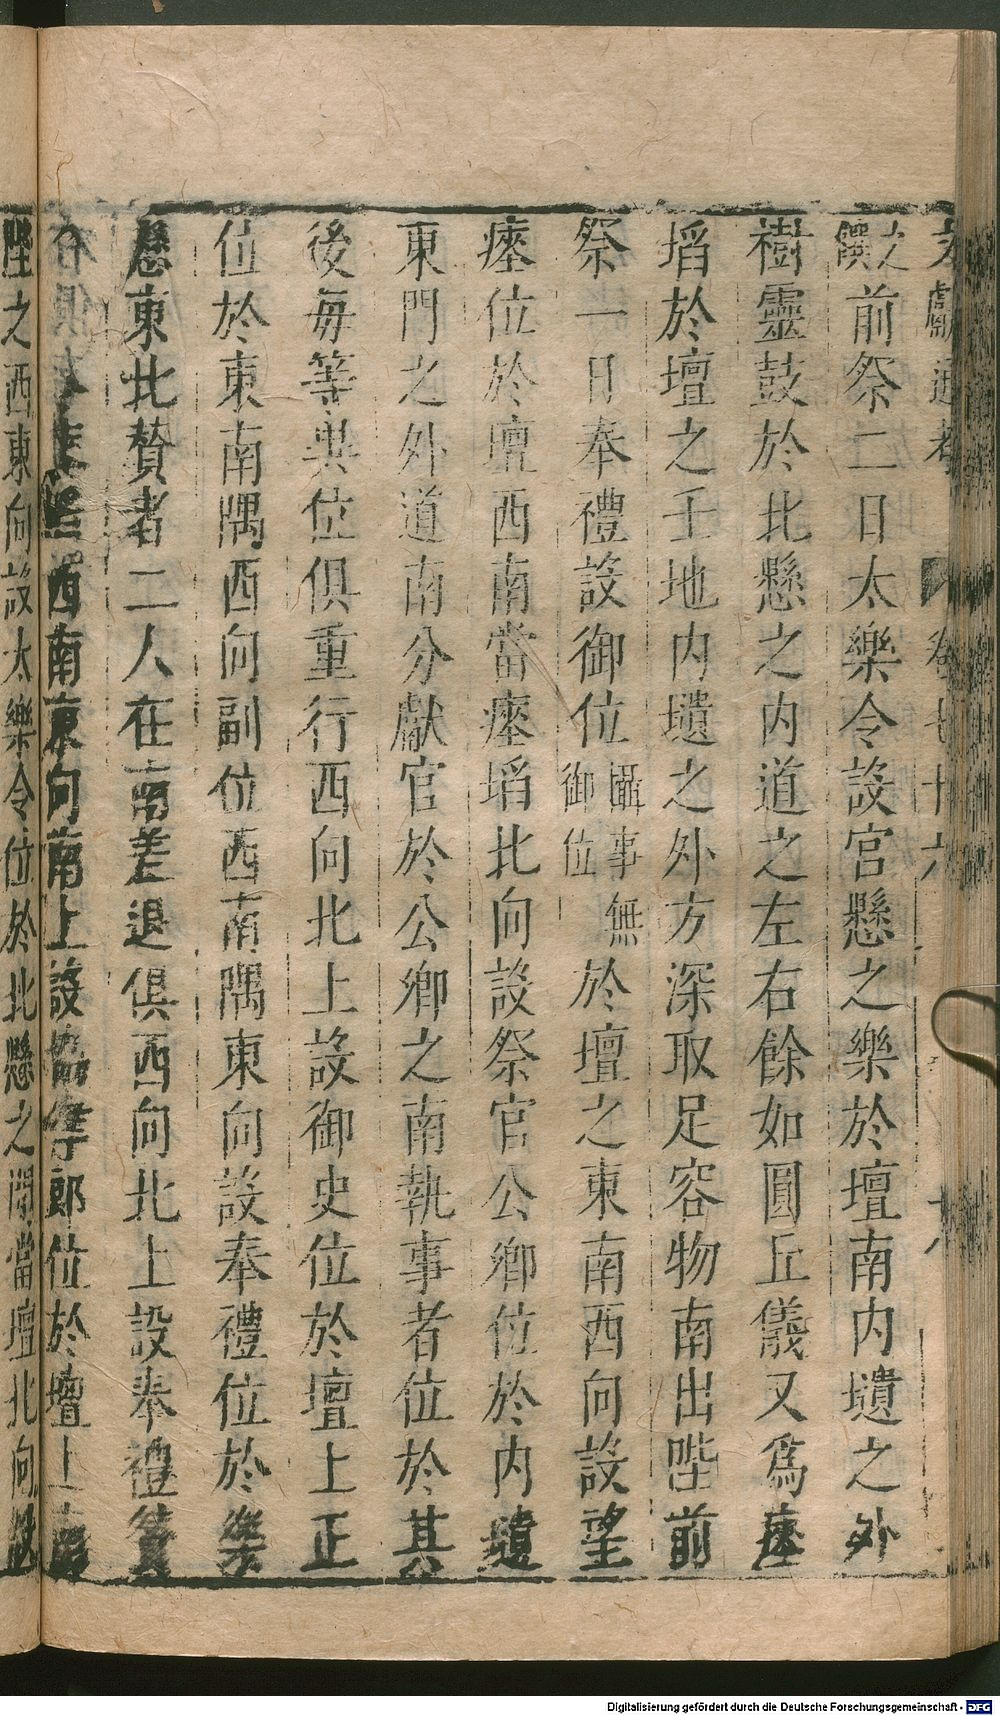 文獻通考 卷七十六 十八
饌之前祭二日太樂令設宮懸之樂於壇南内壝之外
樹靈鼓於北懸之内道之左右餘如圓丘儀又爲瘞
埳於壇之壬地内壝之外方深取足容物南出陛前
祭一日奉禮設御位攝事無御位於壇之東南西向設望
瘞位於壇西南當瘞埳北向設祭官公卿位於内壝
東門之外道南分獻官於公卿之南執事者位於其
後每等異位俱重行西向北上設御史位於壇上正
位於東南隅西向副位西南隅東向設奉禮位於樂
懸東北贊者二人在南差退俱西向北上設奉禮贊
西南東向南上設 郎位於壇上
陛之西東向設太樂令位於北懸之間當壇北向
Digitalisierung gefördert durch die Deutsche Forschungsgemeinschaft - DFG